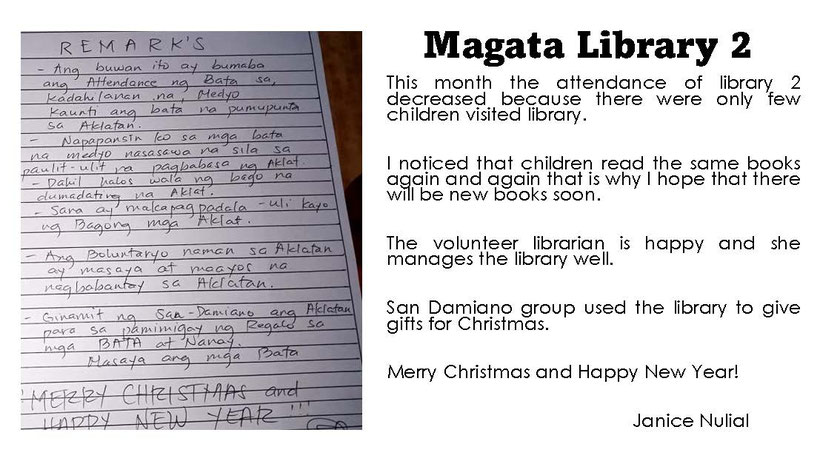 REMARK'S
- Ang buwan ito ay bumaba
ang Attendance ng Bata sa,
kadahilanan na, Medyo
kaunti ang bata na pumupunta
sa Aklatan.
- Napapansin ko sa mga bata
na medyo nasasawa na sila sa
paulit-ulit na pagbabasa ng Aklat.
- Dahil halos wala ng bago na
dumadating na Aklat.
- Sana ay makapagpadala -uli kayo
ng Bagong mga Aklat.
- Ang Boluntaryo naman sa Aklatan
ay masaya at maayos na
nagbabantay sa Aklatan.
- Ginamit ng San-Damiano ang Aklatan
para sa pamimigay ng Regalo sa
mga BATA at Nanay.
Masaya ang mga Bata
'MERRY CHRISTMAS and
HAPPY NEW YEAR'!!!
Magata Library 2
This month the attendance of library 2
decreased because there were only few
children visited library.
I noticed that children read the same books
again and again that is why I hope that there
will be new books soon.
The volunteer librarian is happy and she
manages the library well.
San Damiano group used the library to give
gifts for Christmas.
Merry Christmas and Happy New Year!
Janice Nulial